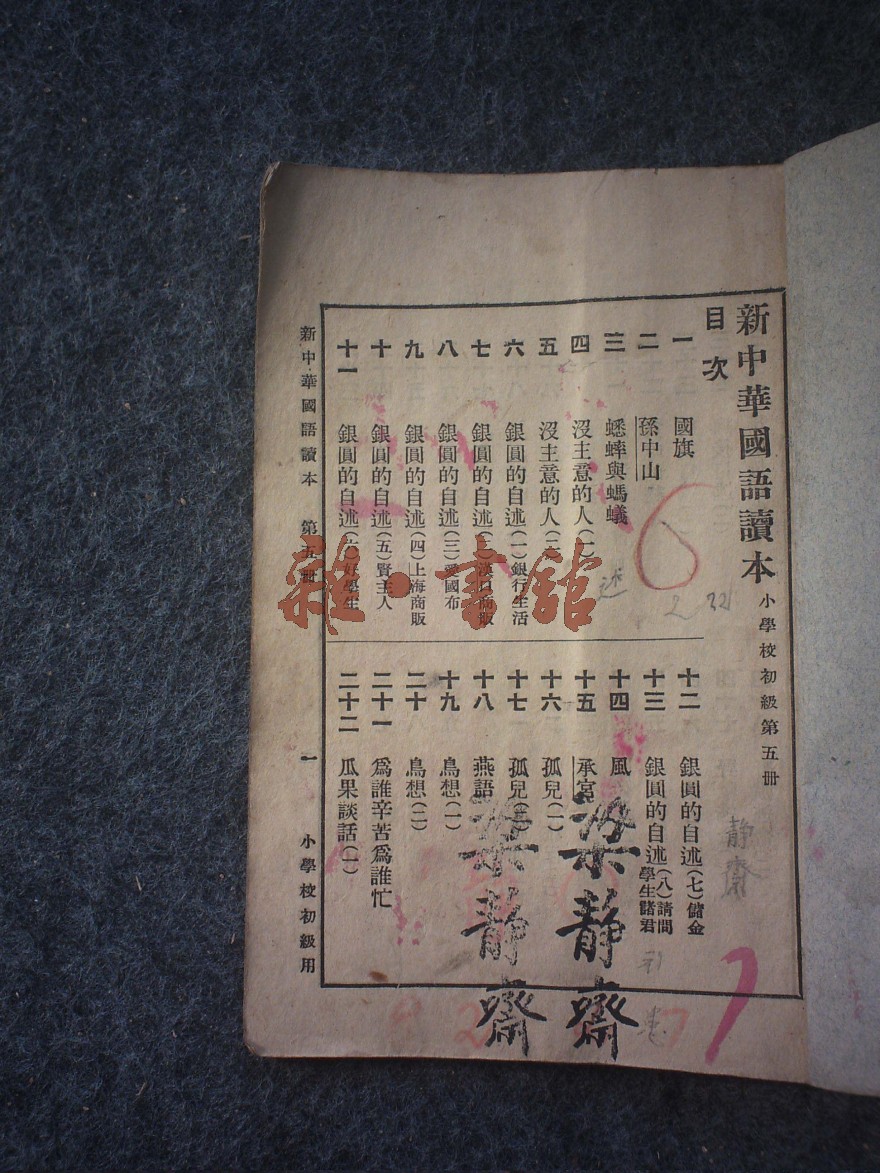 新中華國語讀本 小學校初級第五册
目次
一 國旗
二 孫中山
三 蟋蟀與螞蟻
四 沒主意的人(一)
五 沒主意的人(二)
六 銀圓的自述(一)銀行生活
七 銀圓的自述(二)漢口商販
八 銀圓的自述(三)愛國布
九 銀圓的自述(四)上海商販
十 銀圓的自述(五)賢主人
十一 銀圓的自述(六)好學生
十二 銀圓的自述(七)儲金
十三 銀圓的自述(八)請問學生諸君
十四 風
十五 承宮
十六 孤兒(一)
十七 孤兒(二)
十八 燕語
十九 鳥想(一)
二十 鳥想(二)
二十一 爲誰辛苦爲誰忙
二十二 瓜果談話(一)
新中華國語讀本 第五册
一
小學校初級用
梁静齋
梁静齋
静齋
6
7
雜·書館